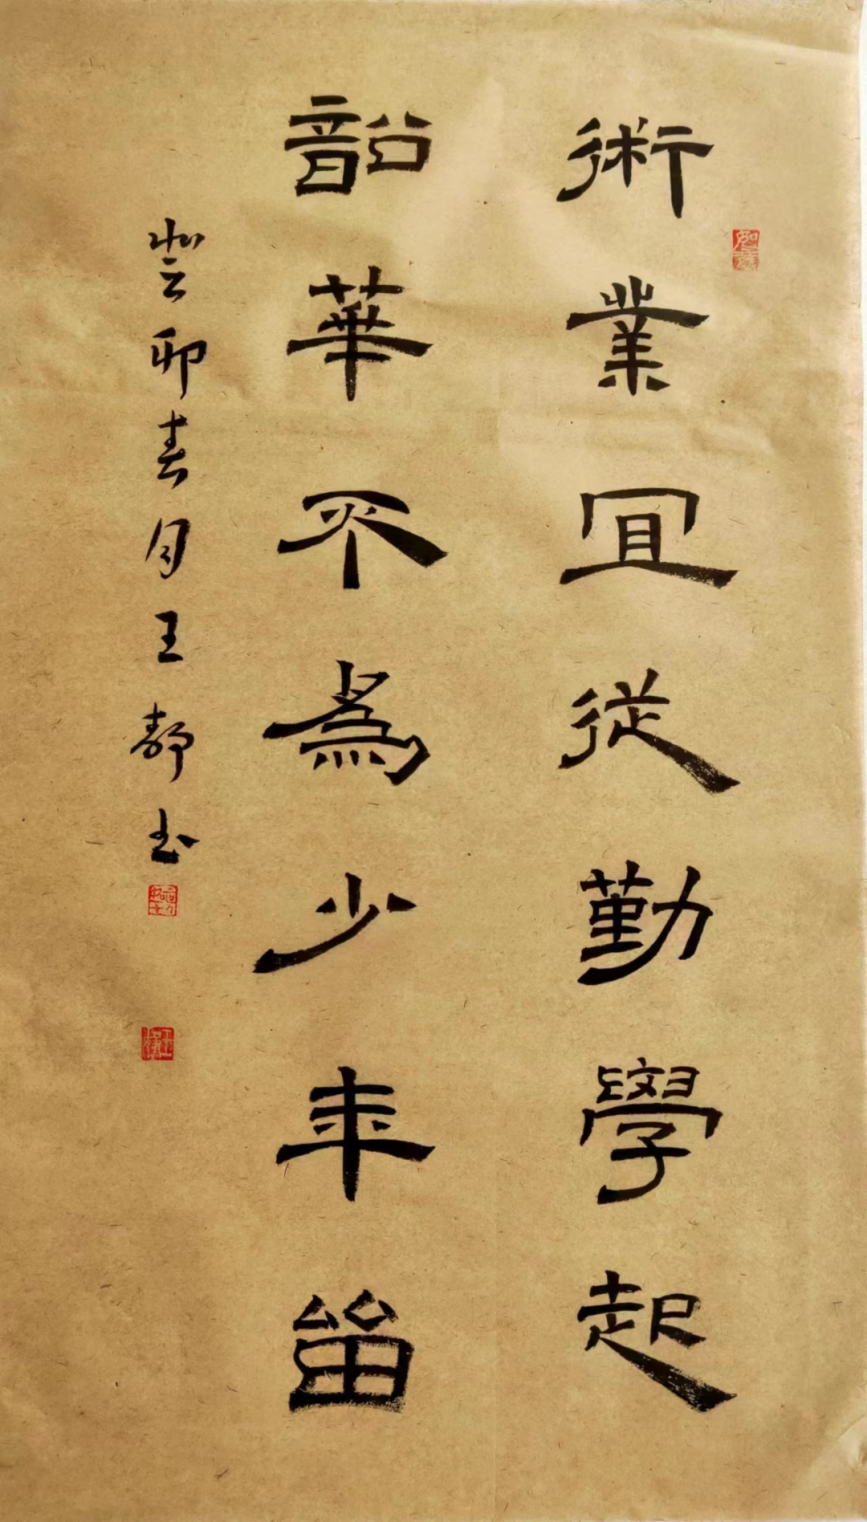 術業宜從勤學起
韶華不為少年留
癸卯春月王靜书